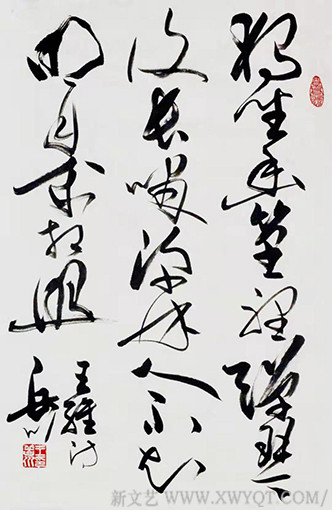 独坐幽篁裡弹琴
复长啸深林人不知
明月来相照
王维诗
新文艺 / WWW.XWYQT.COM/